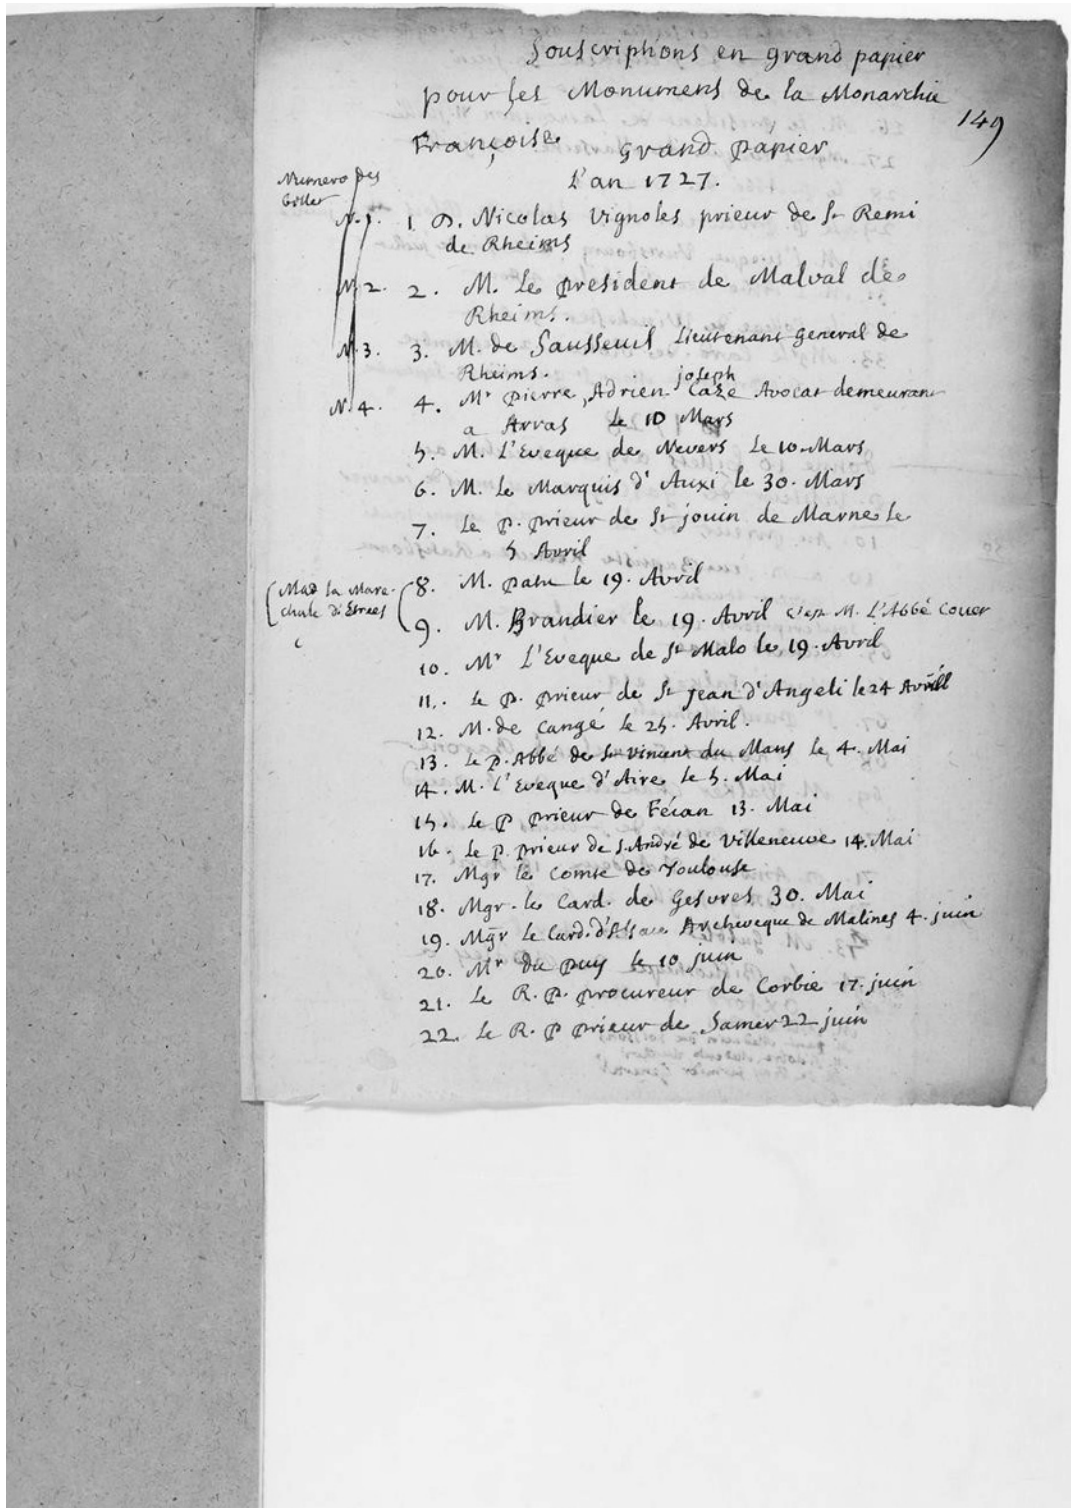 Souscriptions en grand papier
pour les Monumens de la Monarchie
149
Françoise grand papier
L'an 1727.
Numero des
billet
N. 1. 1. D. Nicolas Vignoles prieur de St Remi
de Rheims
N. 2. 2. M. Le president de Malval de
Rheims.
N. 3. 3. M. de Sausseuil Lieutenant general de
Rheims.
joseph
N. 4. 4. Mr pierre, Adrien Caze Avocat demeurant
a Arras le 10 Mars
5. M. L'Eveque de Nevers Le 10 Mars
6. M. Le Marquis d'Auxi le 30. Mars
7. Le p. prieur de St jouin de Marne le
5 Avril
Mad la Mare-
chale d'Etrees
8. M. patu le 19. Avril
9. M. Brandier le 19. Avril c'est M. L'Abbé Couer
10. Mr L'Eveque de St Malo le 19. Avril
11. Le p. prieur de St jean d'Angeli le 24 Avrill
12. M. de Cangé le 25. Avril.
13. Le p. Abbé de St Vincent du Mans le 4. Mai
14. M. l'Eveque d'Aire le 5. Mai
15. Le p prieur de Fécan 13. Mai
16. Le p. prieur de S. André de Villeneuve 14. Mai
17. Mgr le Comte de Toulouse
18. Mgr. le Card. de Gesvres 30. Mai
19. Mgr Le Card. d'Alsace Archeveque de Malines 4. juin
20. Mr du puy le 10 juin
21. Le R. p. procureur de Corbie 17. juin
22. Le R. p prieur de Samer 22 juin